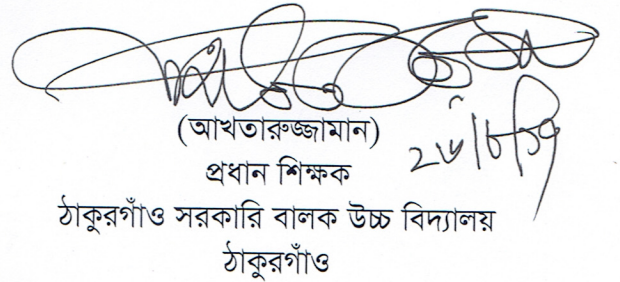 (আখতারুজ্জামান)
প্রধান শিক্ষক
ঠাকুরগাঁও সরকারি বালক উচ্চ বিদ্যালয়
ঠাকুরগাঁও